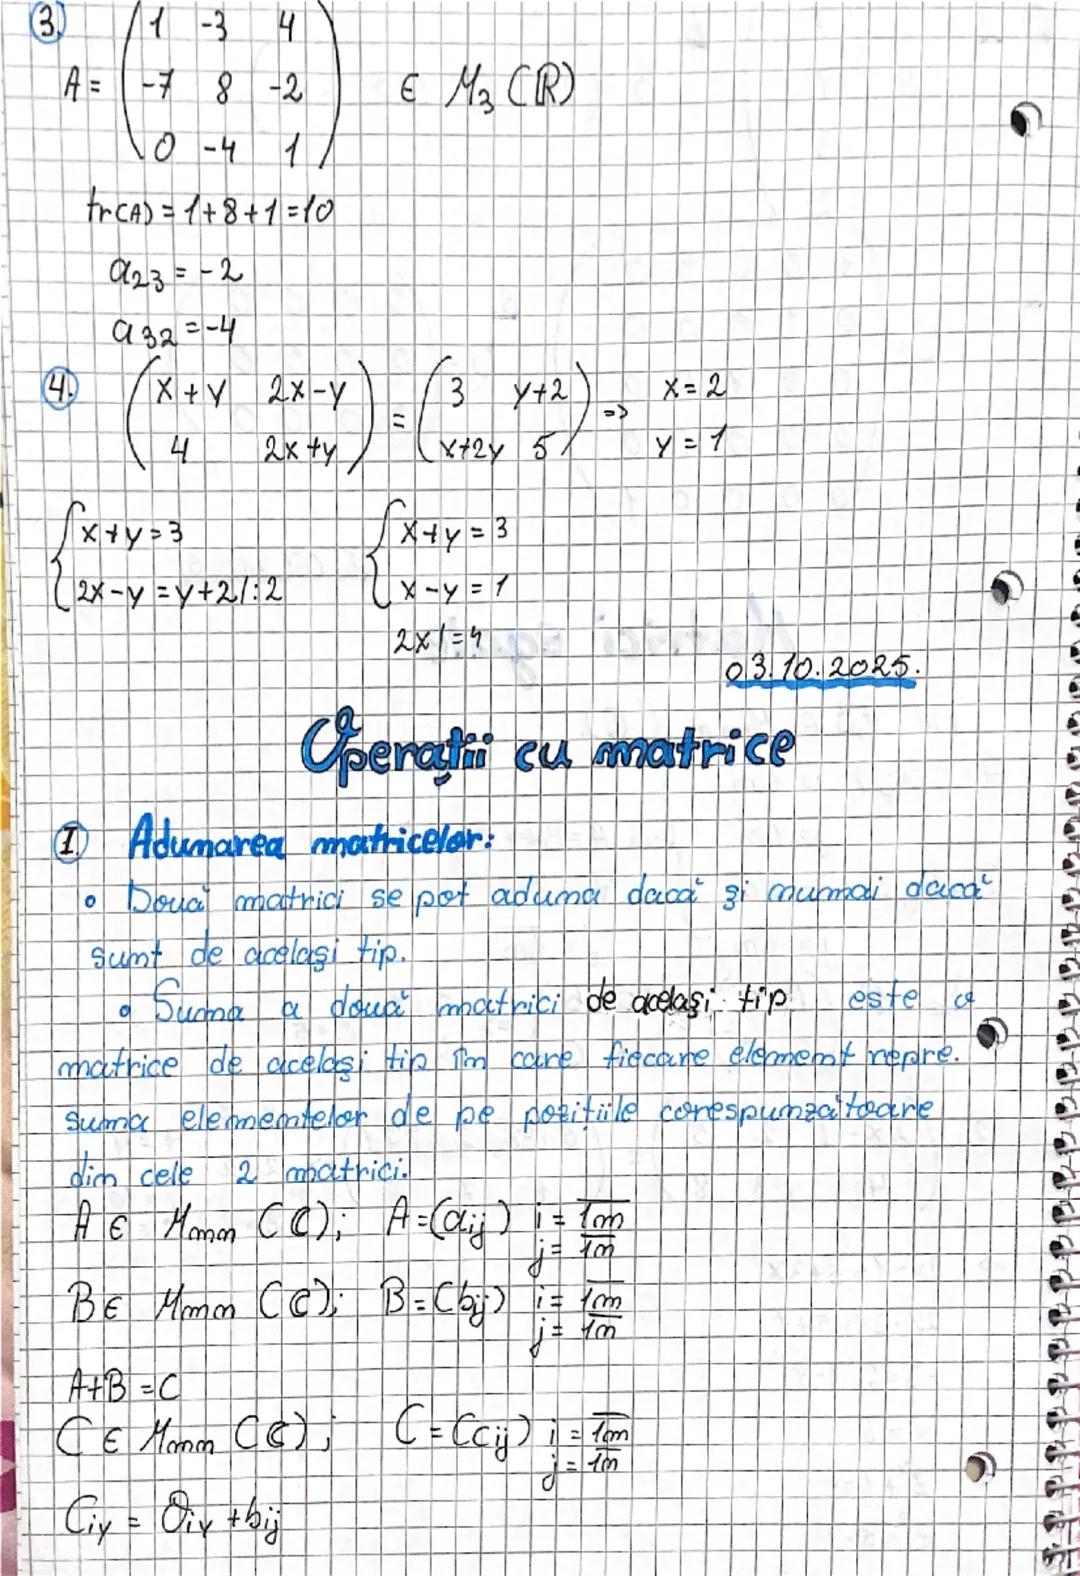 3.
A = ( 1 -3 4
-7 8 -2
0 -4 1 ) ∈ M₃ (ℝ)
tr(A) = 1+8+1 = 10
a₂₃ = -2
a₃₂ = -4
4. ( x+y 2x-y = ( 3 y+2 ) => x = 2
4 2x+y ) x+2y 5 y = 1
{ x+y = 3 { x+y = 3
2x-y = y+2 /:2 x-y = 1
2x / = 4
03.10.2025.
Operații cu matrice
I. Adunarea matricelor:
• Două matrici se pot aduna dacă și numai dacă
sunt de același tip.
• Suma a două matrici de același tip este o
matrice de același tip în care fiecare element repre.
suma elementelor de pe pozițiile corespunzătoare
din cele 2 matrici.
A ∈ Mmn (ℂ); A = (aij) i = 1m
j = 1n
B ∈ Mmn (ℂ); B = (bij) i = 1m
j = 1n
A+B = C
C ∈ Mmn (ℂ); C = (cij) i = 1m
j = 1n
Ciy = aiy + bij